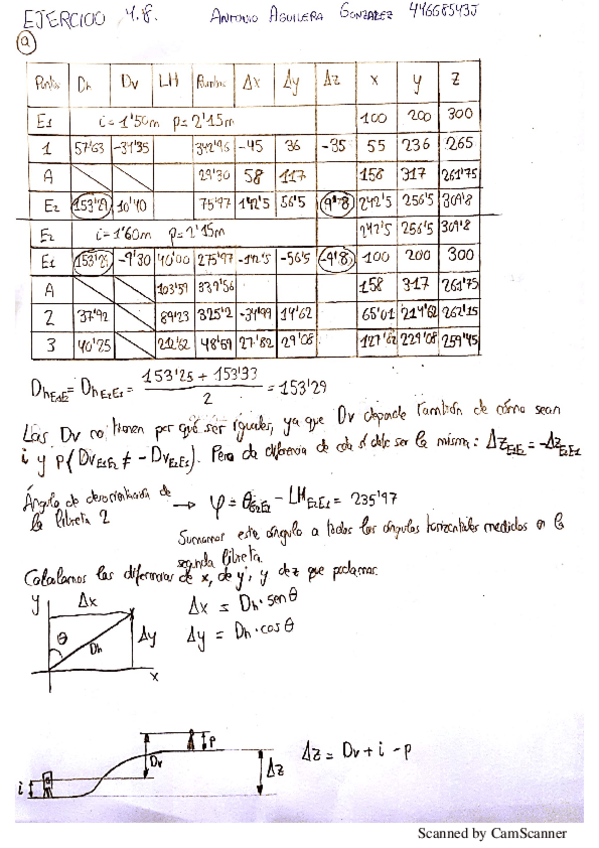 EJERCICIO 4.8. ANTONIO AGUILERA GONZALEZ
a
Puntos Dh Dv LH Rumbo Δx Δy Δz x y z
E1 i = 1'50m p = 2'15m 100 200 300
1 57'63 -34'35 342'96 -45 36 -35 55 236 265
A 29'30 58 117 158 317 261'75
E2 153'29 10'40 75'97 142'5 56'5 9'8 242'5 256'5 309'8
E2 i = 1'60m p = 2'15m 242'5 256'5 309'8
E1 153'29 -9'30 40'00 275'97 -142'5 -56'5 -9'8 100 200 300
A 103'59 339'56 158 317 261'75
2 37'92 89'23 325'2 -34'99 14'62 262'15
3 40'25 212'62 48'59 27'82 29'08 127'62 229'08 259'45
Dh E1E2 = Dh E2E1 = 153'25 + 153'33 / 2 = 153'29
Las Dv no tienen por qué ser iguales, ya que Dv depende también de cómo sean
i y p (Dv E1E2 ≠ - Dv E2E1). Pero la diferencia de cota sí debe ser la misma: Δz E1E2 = -Δz E2E1
Ángulo de desorientación de
la libreta 2 → φ = θ E2E1 - LH E2E1 = 235'97
Sumamos este ángulo a todos los ángulos horizontales medidos en la
segunda libreta.
Calculamos las diferencias de x, de y, y de z que podamos.
y Δx Δx = Dh · sen θ
θ Dh Δy Δy = Dh · cos θ
x
i Dv p Δz Δz = Dv + i - p
Scanned by CamScanner